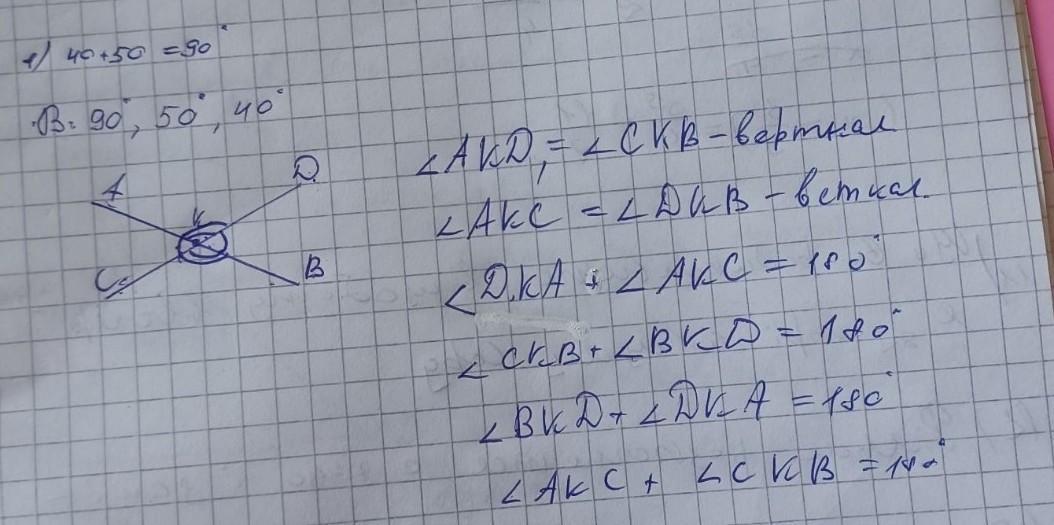 1) 40+50 = 90°
В: 90°, 50°, 40°
A
D
K
C
B
∠AKD = ∠CKB – вертикал
∠AKC = ∠DKB – веткал.
∠DKA + ∠AKC = 180°
∠CKB + ∠BKD = 180°
∠BKD + ∠DKA = 180°
∠AKC + ∠CKB = 180°